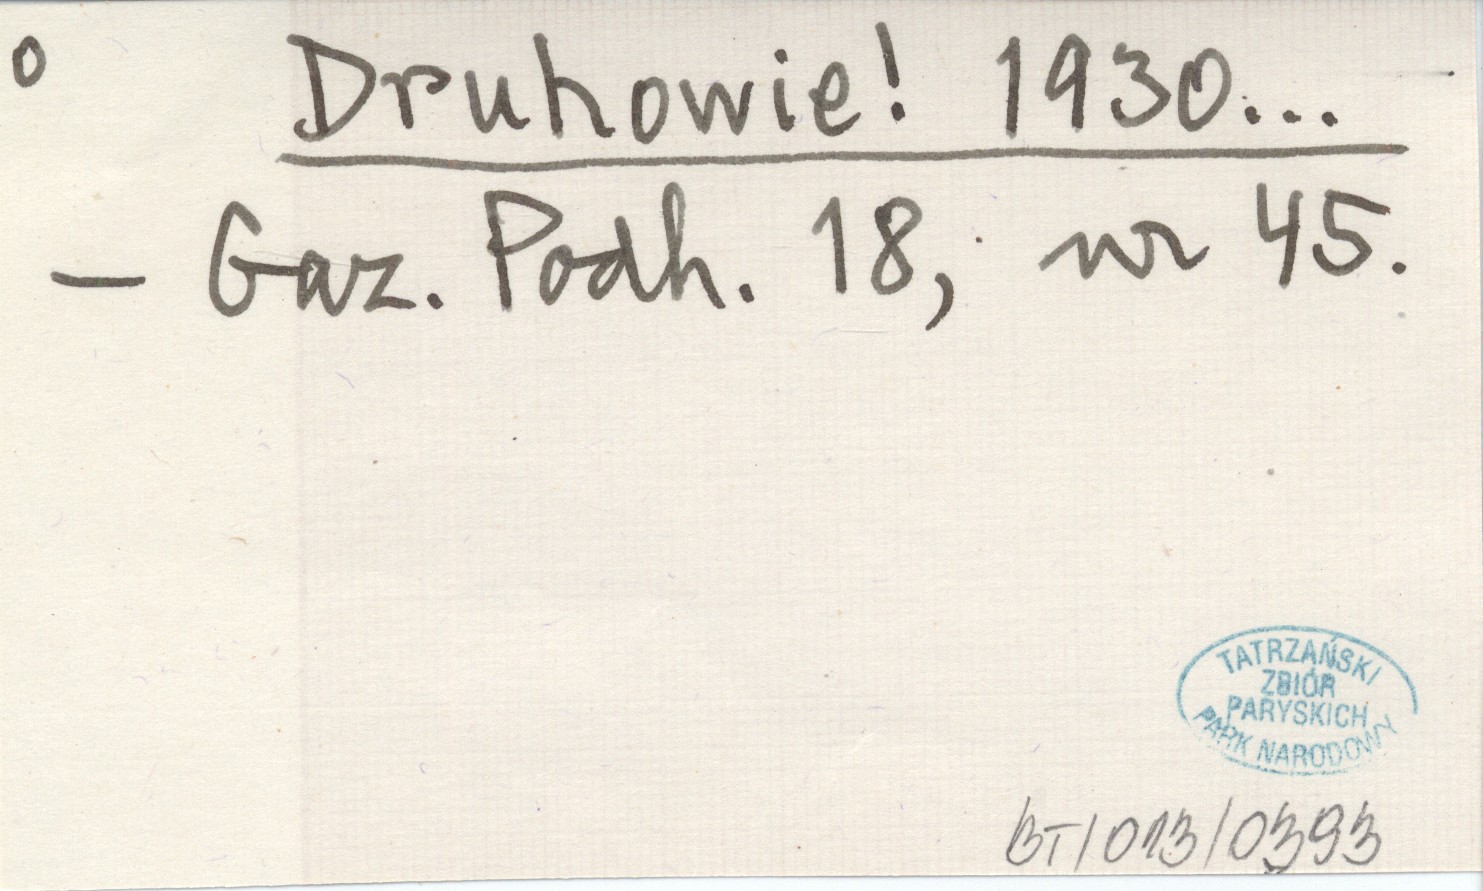 o Druhowie! 1930...
— Gaz. Podh. 18, nr 45.
TATRZAŃSKI
ZBIÓR
PARYSKICH
PARK NARODOWY
BT/013/0393